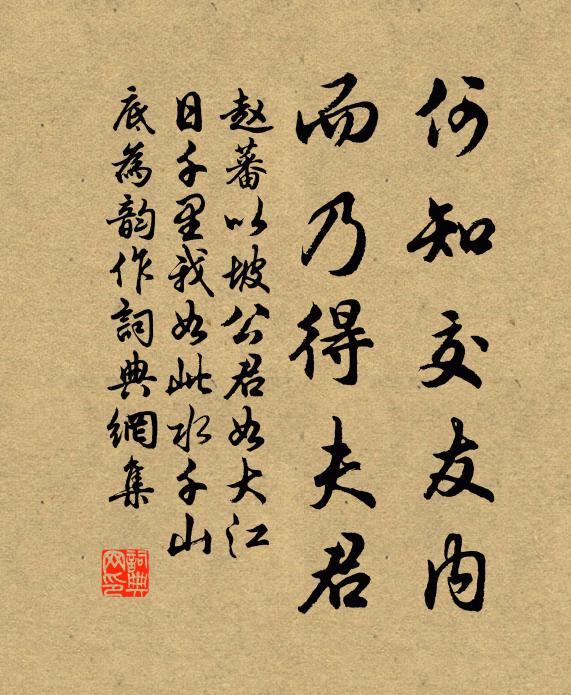 何知交友内
而乃得夫君
赵蕃以坡公君如大江
日千里我如此水千山
底為韵作詞典網集
詞典网印